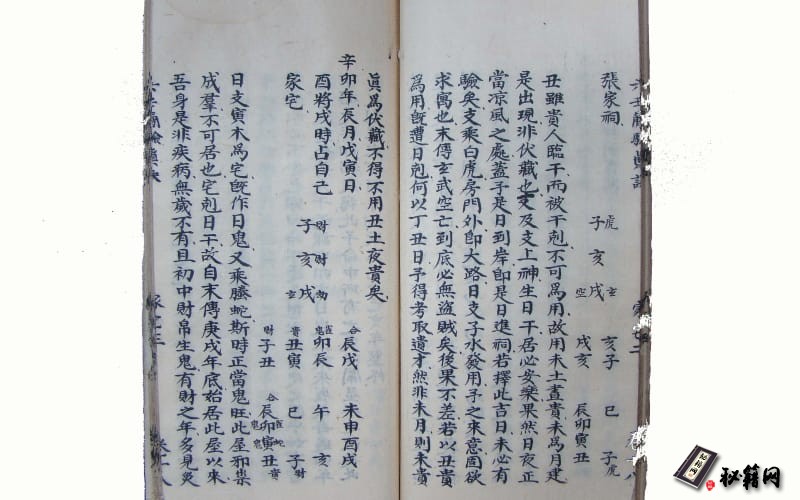 張家祠
虎
子 亥 戌
玄
空
亥子 巳 子虎
戌亥 辰卯寅丑
丑雖貴人臨干而被干剋不可爲用故用未土晝貴未爲月建
是出現非伏藏也支及支上神生日干居必安樂果然日夜正
當凉風之處蓋子是日到岸卽是日進祠若擇此吉日未必有
驗矣支乘白虎房門外卽大路日支子水發用予之來意固欲
求寓也末傳玄武空亡到底必無盜賊矣後果不差若以丑貴
爲用旣遭日剋何以丁丑日予得考取遺才然非未月則未貴
眞爲伏藏不得不用丑土夜貴矣
辛卯年辰月戊寅日
酉將戌時占自己
家宅
子財 亥財 戌
玄
合辰戌 未申酉戌
鬼卯辰 午 亥
貴丑寅 巳 子財
財子丑 合辰卯寅丑貴
日支寅木爲宅旣作日鬼又乘螣蛇斯時正當鬼旺此屋邪祟
成羣不可居也宅剋日干故自末傳庚戌年底始居此屋以來
吾身是非疾病無歲不有且初中財帛生鬼有財之年多見災
秘籍网